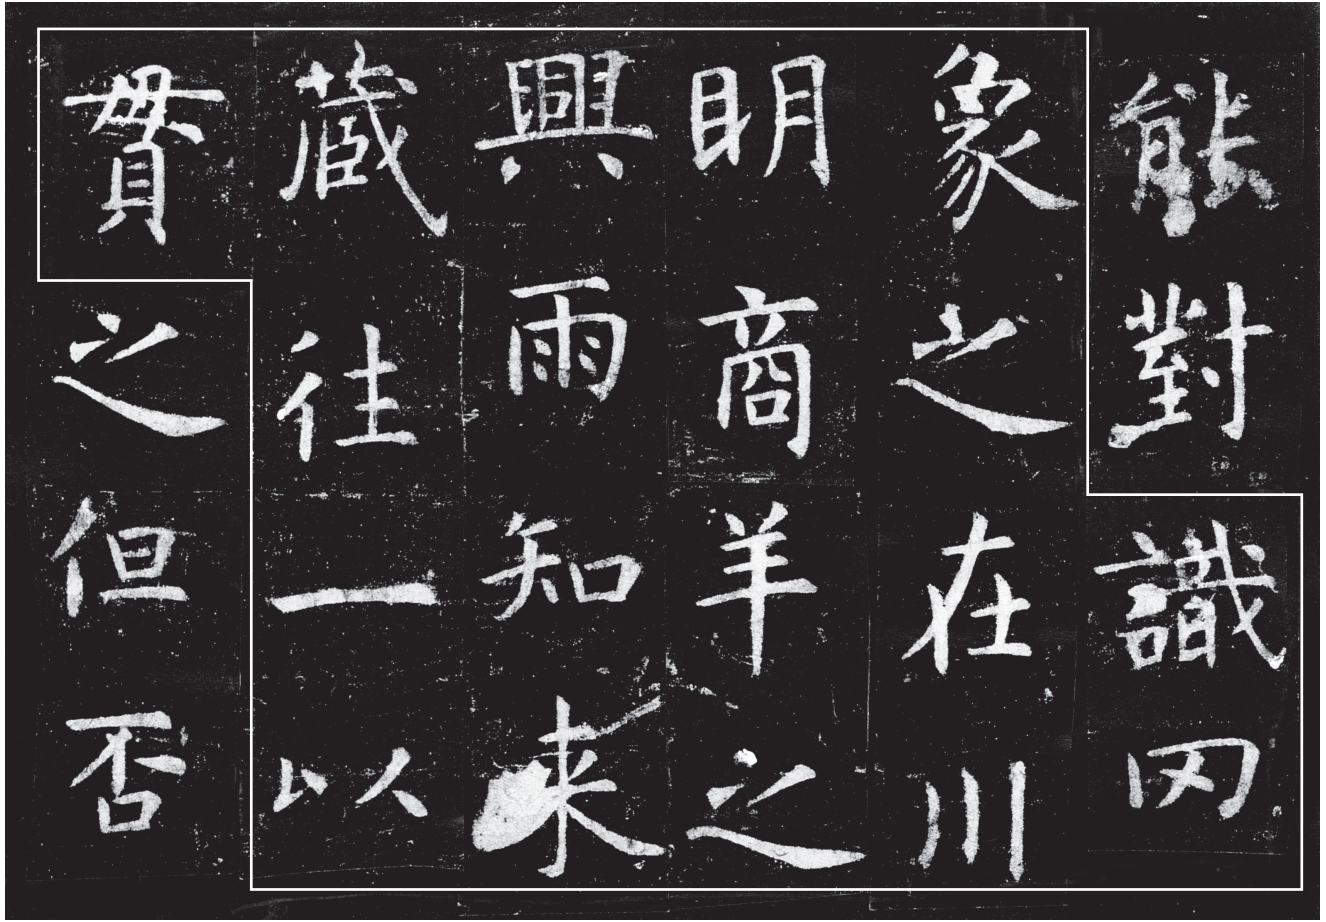 能對識罔
象之在川
明商羊之
興雨知來
藏往一以
貫之但否